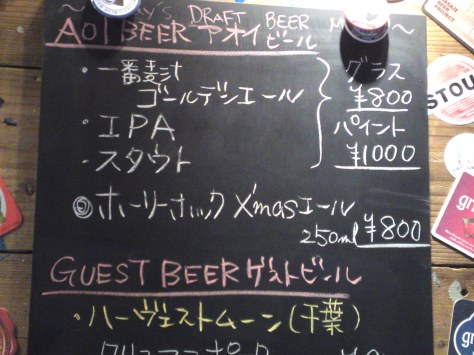 DRAFT BEER
AOI BEER アオイビール
・一番麦汁
ゴールデンエール
・IPA
・スタウト
グラス
¥800
パイント
¥1000
◎ホーリーホック X'masエール
250ml ¥800
GUEST BEER ゲストビール
・ハーヴェストムーン(千葉)
STOU